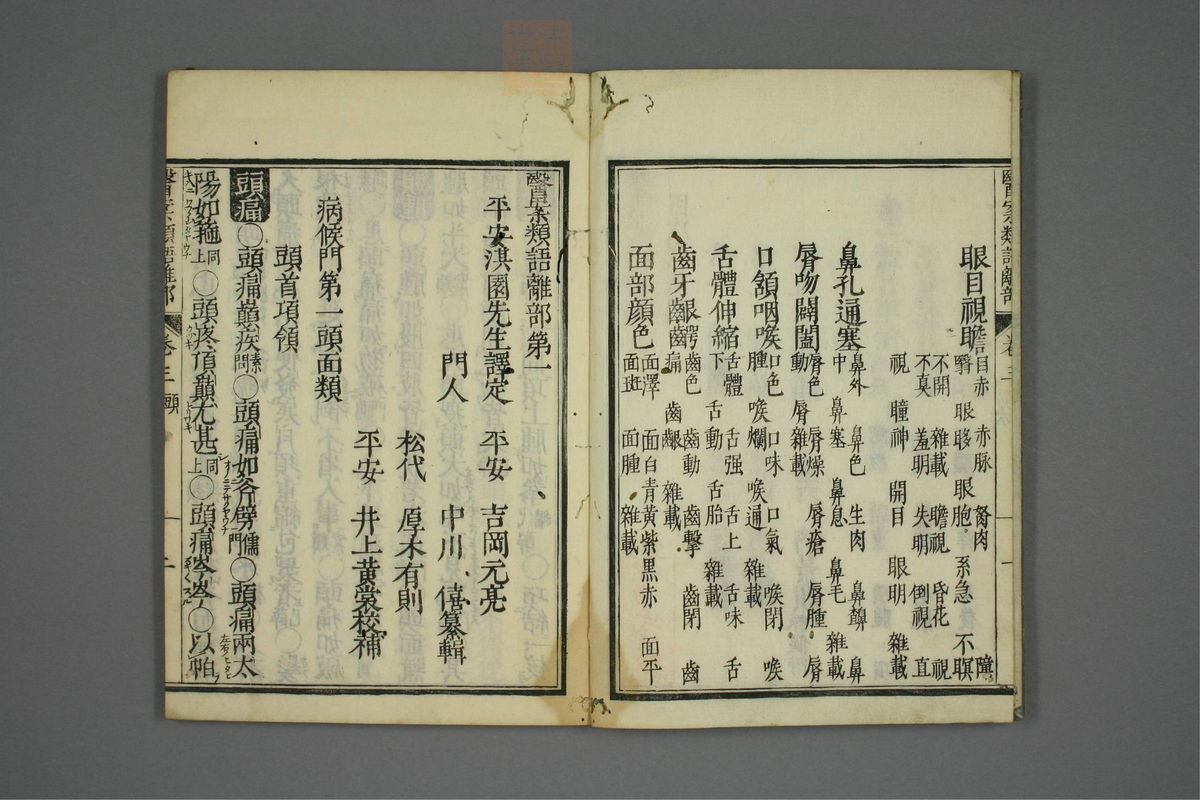 眼目視瞻 目赤 赤脉 胬肉 障
翳 眼眵 眼胞 系急 不瞑
不開 雜載 瞻視 昏花 視
不真 羞明 失明 倒視 直
視 瞳神 開目 眼明 雜載
鼻孔通塞 鼻外 鼻色 生肉 鼻齆 鼻
中 鼻塞 鼻息 鼻毛 雜載
脣吻闢闔 脣色 脣燥 脣瘡 脣腫 脣
動 脣 雜載
口頷咽喉 口色 口味 口氣 喉閉 喉
腫 喉爛 喉通 雜載
舌體伸縮 舌體 舌强 舌上 舌味 舌
下 舌動 舌胎 雜載
齒牙齦齶 齒色 齒動 齒擊 齒閉 齒
痛 齒齦 雜載
面部顔色 面澤 面白 青黄紫黒赤 面平
面斑 面腫 雜載
醫案類語離部 卷三 一
醫案類語離部第一
平安淇園先生譯定 平安 吉岡元亮
門人 中川 僖纂輯
松代 厚木有則
平安 井上黄裳校補
病候門第一頭面類
頭首項領
頭痛〇頭痛巔疾素問〇頭痛如斧劈儒門〇頭痛兩太
陽如箍同上〇頭疼頂巔尤甚同上〇頭痛岑岑〇以帕
醫案類語離部 卷三 頭 一